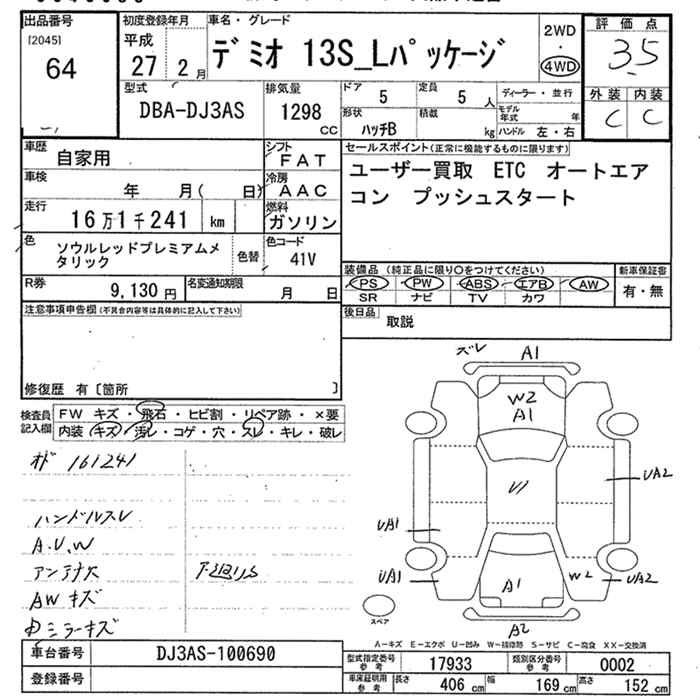 出品番号
[2045]
64
初度登録年月
平成
27 2月
車名・グレード
デミオ 13S_Lパッケージ
2WD
・
4WD
評価点
3.5
外装 内装
C C
型式
DBA-DJ3AS
排気量
1298
CC
ドア
5
定員
5 人
形状
ハッチB
積載
kg
ディーラー・並行
モデル年式 年
ハンドル 左・右
車歴
自家用
シフト
FAT
車検
年 月( 日)
冷房
AAC
走行
16万1千241 km
燃料
ガソリン
色
ソウルレッドプレミアムメ
タリック
色替
色コード
41V
R券
9,130 円
名変通知期限
月 日
セールスポイント(正常に機能するものに限ります)
ユーザー買取 ETC オートエア
コン プッシュスタート
装備品 (純正品に限り○をつけてください)
PS PW ABS エアB AW
SR ナビ TV カワ
新車保証書
有・無
後日品
取説
注意事項申告欄(不具合内容等は具体的に記入して下さい)
修復歴 有〔箇所 〕
検査員
記入欄
FW キズ・飛石・ヒビ割・リペア跡・×要
内装 キズ・汚レ・コゲ・穴・スレ・キレ・破レ
161241
ハンドルスレ
A.U.W
アンテナ欠
下廻りS
AWキズ
ミラーキズ
ズレ A1
W2
A1
U1
UA2
UA1
UA1
A1
W2
UA2
A2
スペア
A-キズ E-エクボ U-凹み W-補修跡 S-サビ C-腐食 XX-交換済
車台番号
DJ3AS-100690
登録番号
型式指定番号
参考
17933
類別区分番号
参考
0002
車庫証明用
参考
長さ
406 cm
幅
169 cm
高さ
152 cm